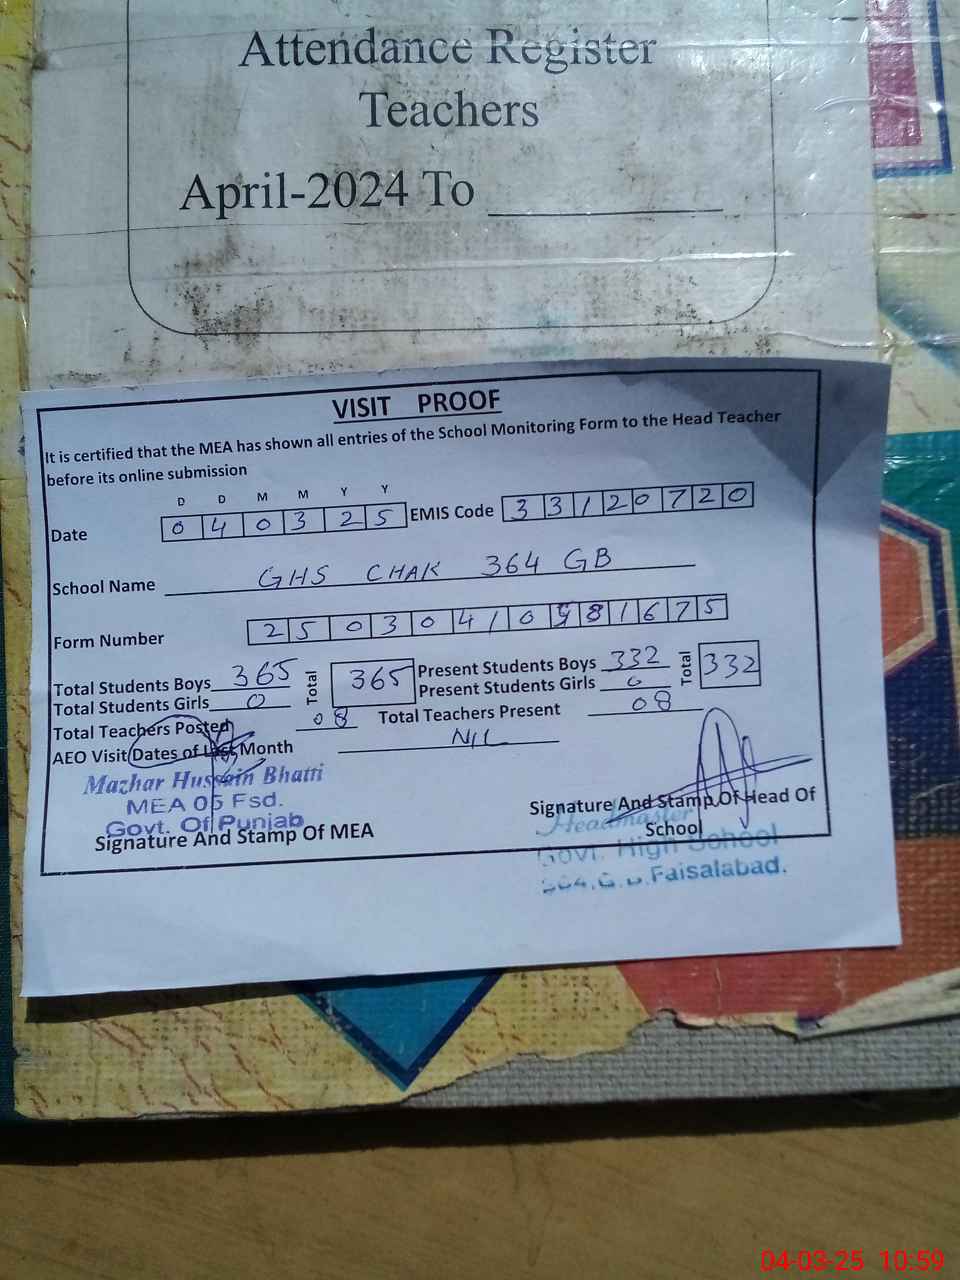 Attendance Register
Teachers
April-2024 To
VISIT PROOF
It is certified that the MEA has shown all entries of the School Monitoring Form to the Head Teacher
before its online submission
D D M M Y Y
Date 0 4 0 3 2 5 EMIS Code 3 3 1 2 0 7 2 0
School Name GHS CHAK 364 GB
Form Number 2 5 0 3 0 4 1 0 8 1 6 7 5
Total Students Boys 365 Total 365 Present Students Boys 332 Total 332
Total Students Girls 0 Present Students Girls 0
Total Teachers Posted 08 Total Teachers Present 08
AEO Visit Dates of Last Month NIL
Mazhar Hussain Bhatti
MEA 05 Fsd.
Govt. Of Punjab
Signature And Stamp Of MEA
Signature And Stamp Of Head Of
School
Headmaster
Govt. High School
364.G.B.Faisalabad.
04-03-25 10:59